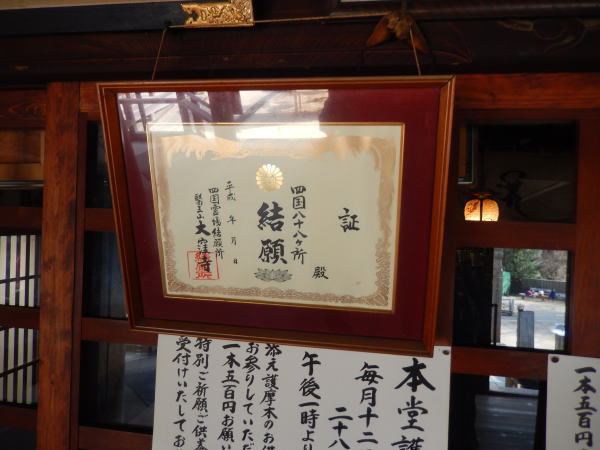 証
四国八十八ヶ所
結願
殿
平成 年 月 日
四国霊場結願所
醫王山大窪寺
本堂護
毎月十二
二十八
午後一時より
添え護摩木のお供
お参りしていただ
一本五百円お願い
特別ご祈願ご供養
受付けいたしてお
一本五百円